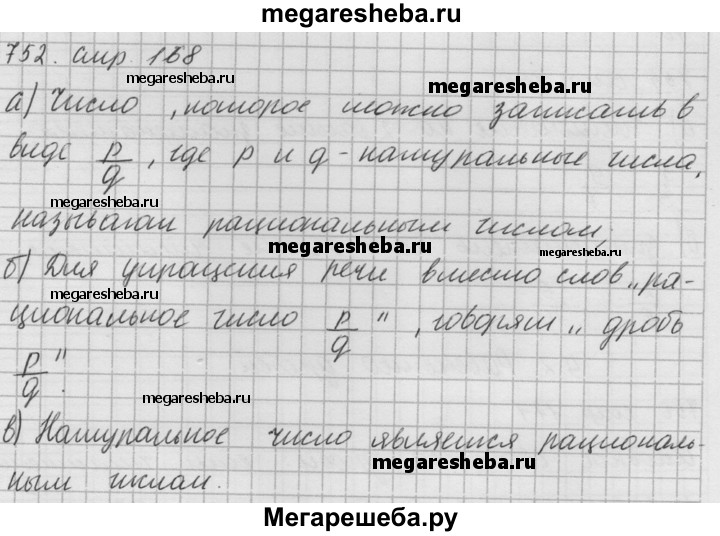 megaresheba.ru
752. стр. 168
megaresheba.ru
megaresheba.ru
а) Число , которое можно записать в
виде p/q , где p и q - натуральные числа,
megaresheba.ru
называют рациональным числом,
megaresheba.ru
megaresheba.ru
б) Для упрощения речи вместо слов „ра-
megaresheba.ru
циональное число p/q " , говорят „ дробь
p/q ".
megaresheba.ru
в) Натуральное число является рациональ-
megaresheba.ru
ным числом.
Мегарешеба.ру